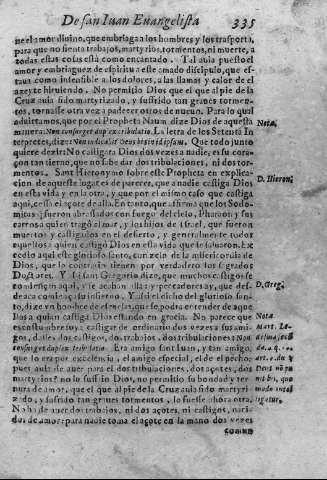 De san Iuan Euangelista 335
ne el amor diuino, que embriaga a los hombres y los trasporta,
para que no sienta trabajos, martyrios, tormentos, ni muerte, a
todas estas cosas está como encantado. Tal auia puesto el
amor y embriaguez de espiritu a este amado discipulo, que es-
taua como insensible a los dolores, a las llamas y calor de el
azeyte hiruiendo. No permitio Dios que el que al pie de la
Cruz auia sido martyrizado, y sufrido tan graues tormen-
tos, tornasse otra vez a padecer otros de nueuo. Para lo qual
aduirtamos, que por el Propheta Naum dize Dios de aquesta
manera: Non consurget duplex tribulatio. La letra de los Setenta In
terpretes, dize: Non iudicabit Deus bis in id ipsum. Que todo junto
quiere dezir: No castigara Dios dos vezes a nadie, es su cora-
çon tan tierno, que no sabe dar dos tribulaciones, ni dos tor-
mentos. Sant Hieronymo sobre este Propheta en explica-
cion de aqueste lugar es de parecer, que a nadie castiga Dios
en esta vida y en la otra, y que por el mismo caso que castiga
aqui, cessa el açote de alla. En tanto, que afirma que los Sodo-
mitas, y fueron abrassados con fuego del cielo, Pharaon y sus
carros a quien tragó el mar, y los hijos de Israel, que fueron
muertos y castigados en el desierto, y generalmente todos
aquellos a quien castigó Dios en esta vida que se saluaron. Ex
cedio aqui este glorioso santo, con zelo de la misericordia de
Dios, que lo contrario tienen por verdadero los sagrados
Doctores. Y si san Gregorio dize, que muchos castigos se
comiençan aqui, y se acaban alla
deaca començó su infierno. Y assi el dicho del glorioso san-
to, dize vn hombre de essos, que se podra entender de aque
llos a quien castiga Dios estando en gracia. No parece que
es costumbre suya castigar de ordinario dos vezes a sus ami-
gos, dalles dos castigos, dos trabajos, dos tribulaciones: Non
consurget duplex tribulatio. Era amigo san Iuan, y tan amigo,
que lo era por excelencia, el amigo especial, el de el pecho,
pues auia de auer para el dos tribulaciones, dos açotes, dos
martyrios? no lo sufrio Dios, no permitio su bondad y ter-
nura de amor, que el que al pie de la Cruz auia sido martyri-
zado, y sufrido tan graues tormentos, lo fuesse ahora otra.
No ha de auer dos trabajos, ni dos açotes, ni castigos, naci-
dos de amor: para nadie toma el açote en la mano dos vezes
como
Nota.
D. Hieron.
D. Greg.
Nota